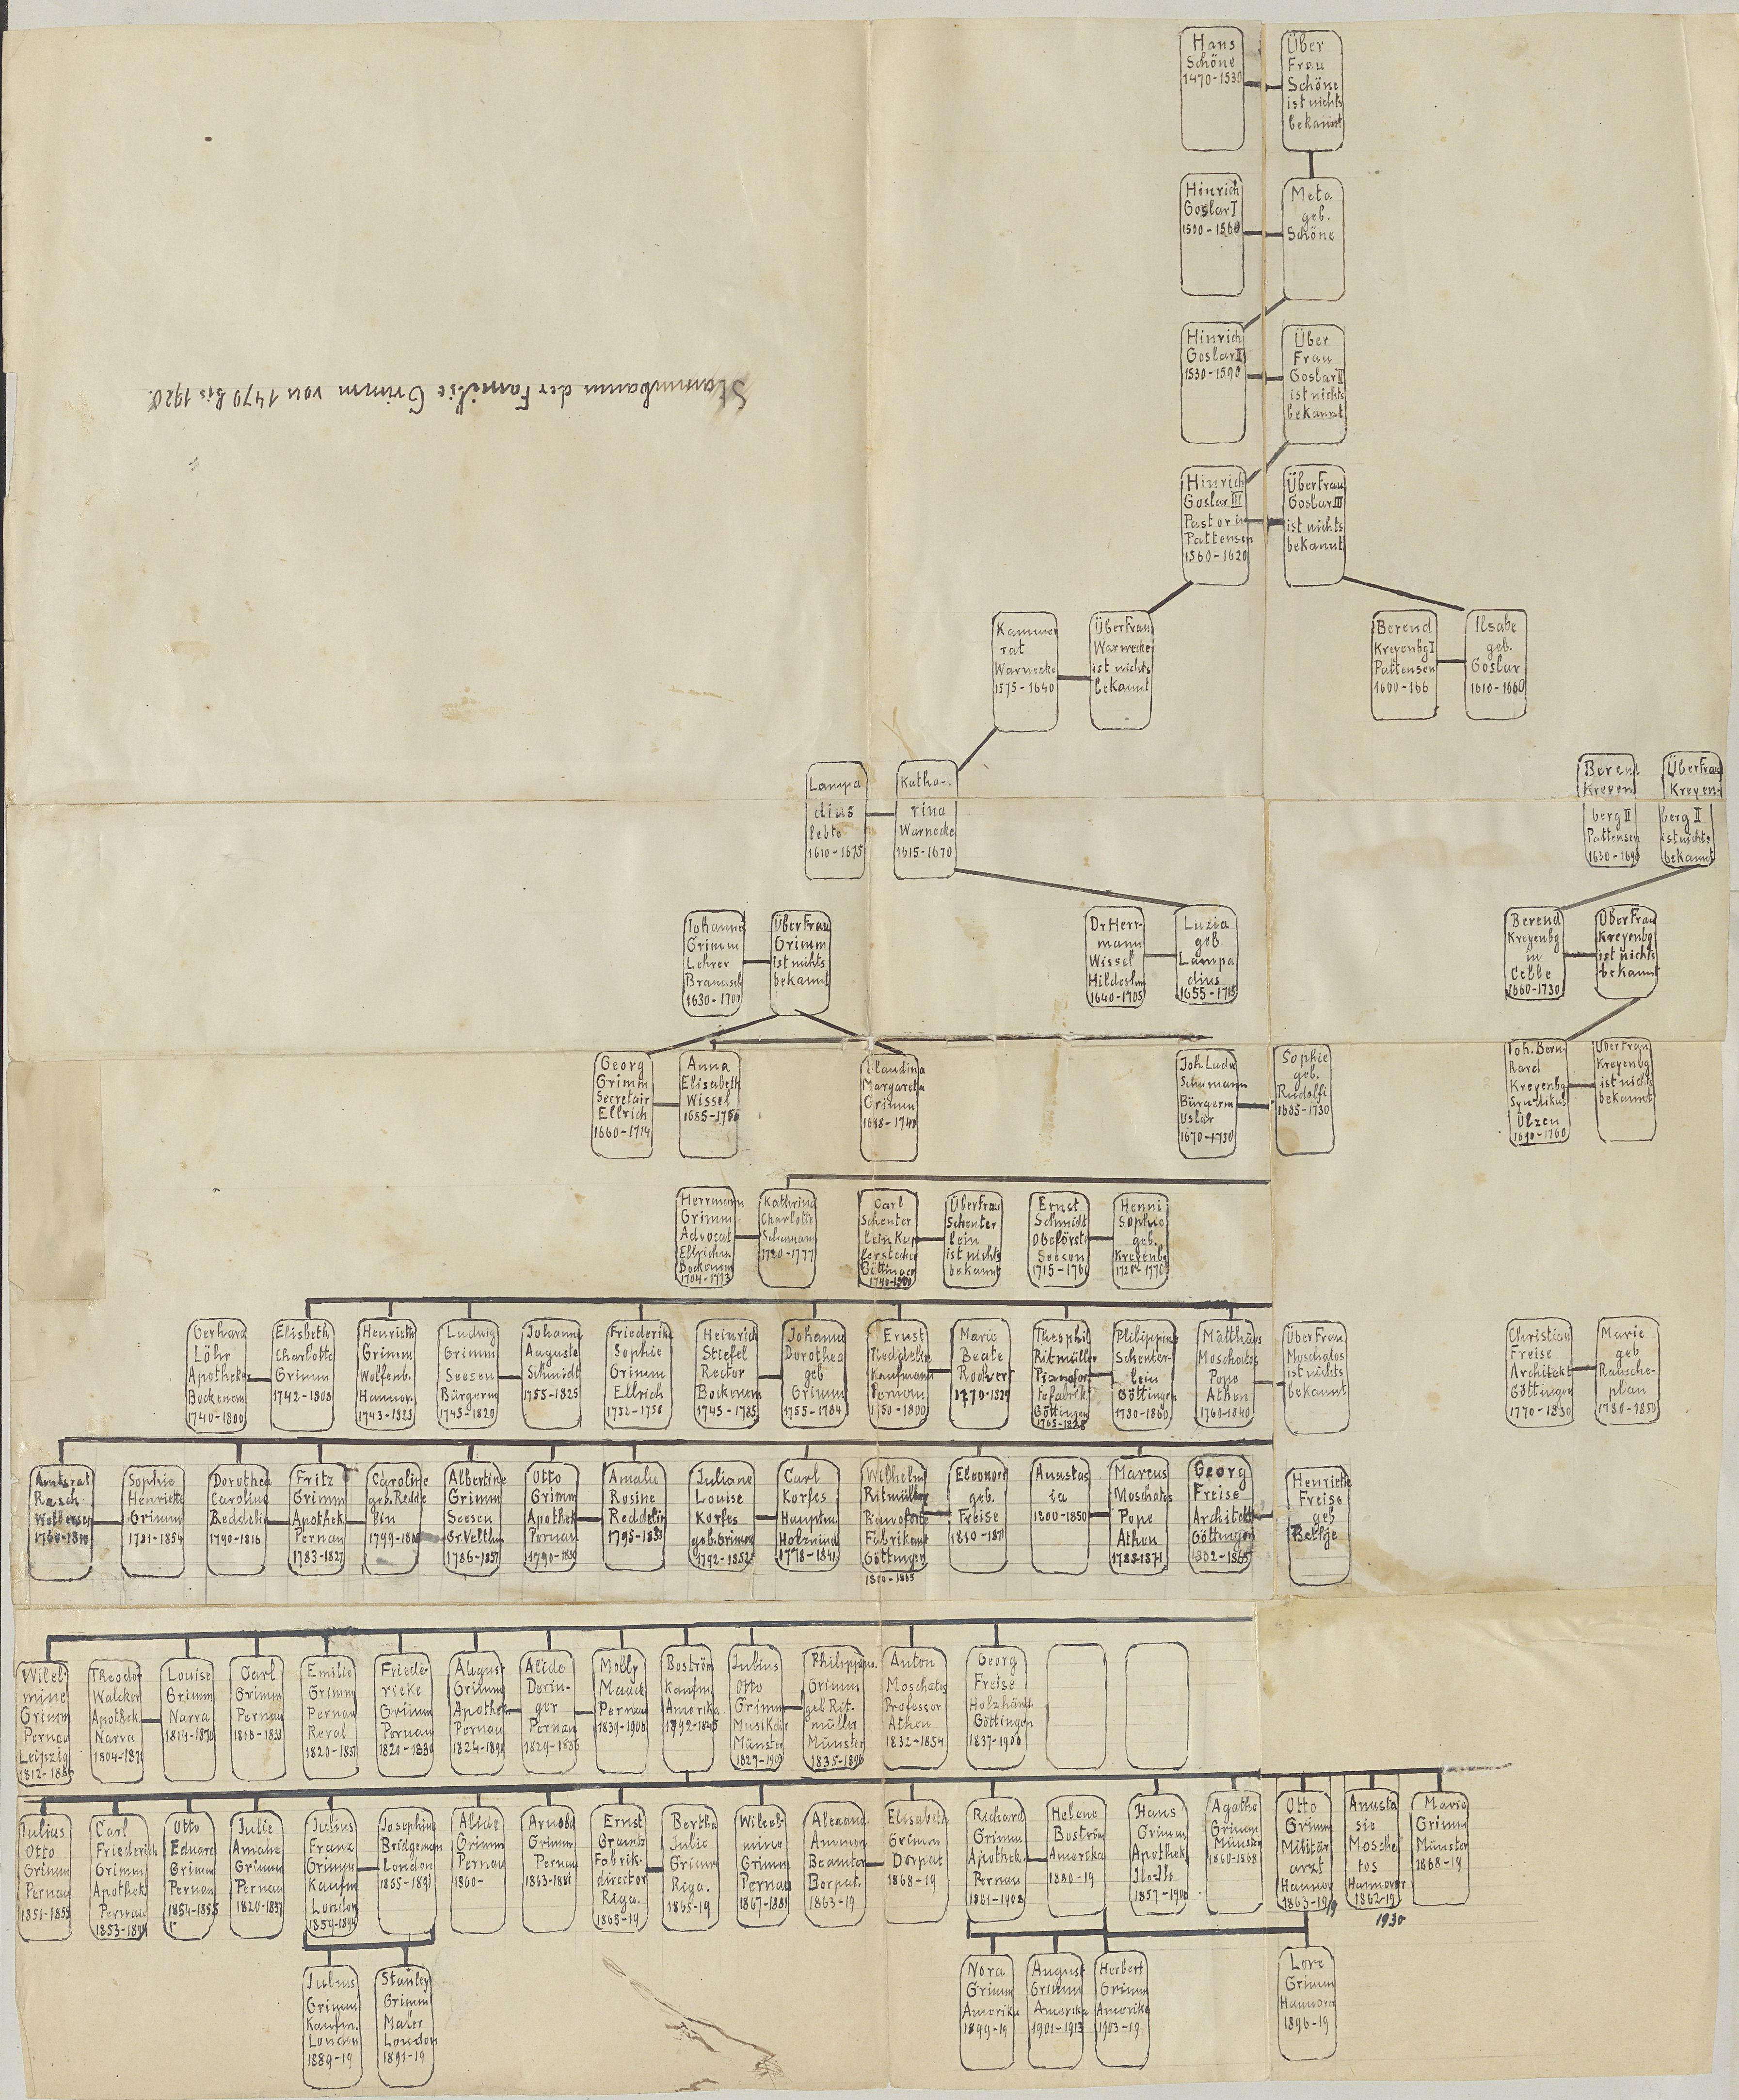 Hans
Schöne
1470-1530
Über
Frau
Schöne
ist nichts
bekannt
Hinrich
Goslar I
1500-1560
Meta
geb.
Schöne
Hinrich
Goslar II
1530-1590
Über
Frau
Goslar II
ist nichts
bekannt
Stammbaum der Familie Grimm von 1470 bis 1920.
Hinrich
Goslar III
Pastor in
Pattensen
1560-1620
Über Frau
Goslar III
ist nichts
bekannt
Kammer
rat
Warnecke
1575-1640
Über Frau
Warnecke
ist nichts
bekannt
Berend
Kreyenbg I
Pattensen
1600-166
Ilsabe
geb.
Goslar
1610-1660
Lampa
dius
lebte
1610-1675
Katha-
rina
Warnecke
1615-1670
Berend
Kreyen
berg II
Pattensen
1630-1690
Über Frau
Kreyen-
berg II
ist nichts
bekannt
Johannes
Grimm
Lehrer
Braunsch
1630-1700
Über Frau
Grimm
ist nichts
bekannt
Dr Herr-
mann
Wissel
Hildeshm
1640-1705
Luzia
geb.
Lampa
dius
1655-1715
Berend
Kreyenbg
in
Celle
1660-1730
Über Frau
Kreyenbg
ist nichts
bekannt
Georg
Grimm
Secretair
Ellrich
1660-1714
Anna
Elisabeth
Wissel
1685-1756
Claudina
Margaretha
Grimm
1688-1740
Joh. Ludw
Schumann
Bürgerm
Uslar
1670-1730
Sophie
geb.
Rudolfi
1685-1730
Joh. Bern-
hard
Kreyenbg
Syndikus
Ülzen
1690-1760
Über Frau
Kreyenbg
ist nichts
bekannt
Herrmann
Grimm
Advocat
Ellrich u.
Bockenem
1704-1773
Kathrina
Charlotte
Schumann
1720-1777
Carl
Schenter
lein Kup
ferstecher
Göttingen
1740-1800
Über Frau
Schenter
lein
ist nichts
bekannt
Ernst
Schmidt
Obeförste
Seesen
1715-1760
Henni
Sophie
geb.
Kreyenbg
1720-1770
Gerhard
Löhr
Apotheker
Bockenem
1740-1800
Elisbeth
Charlotte
Grimm
1742-1808
Henriette
Grimm
Wolfenb.
Hannov.
1743-1823
Ludwig
Grimm
Seesen
Bürgerm
1745-1820
Johanne
Auguste
Schmidt
1755-1825
Friederike
Sophie
Grimm
Ellrich
1752-1758
Heinrich
Stiefel
Rector
Bockenem
1745-1785
Johanne
Dorothea
geb
Grimm
1755-1784
Ernst
Reddelin
Kaufmann
Pernau
1750-1800
Marie
Beate
1770-1829
Theophil
Ritmüller
Pianofor
tefabrik
Göttingen
1765-1828
Philippine
Schenter-
lein
Göttingen
1780-1860
Matthäus
Moschatos
Pope
Athen
1760-1840
Über Frau
Moschatos
ist nichts
bekannt
Christian
Freise
Architekt
Göttingen
1770-1830
Marie
geb
Rausche-
plan
1780-1850
Amtsrat
Rasch
1760-1819
Sophie
Henriette
Grimm
1781-1854
Dorothea
Caroline
Reddelin
1790-1816
Fritz
Grimm
Apothek
Pernau
1783-1827
Caroline
geb. Redde
lin
Albertine
Grimm
Seesen
Gr. Velthm
1786-1857
Otto
Grimm
Apothek
Pernau
Amalie
Rosine
Reddelin
1795-1833
Juliane
Louise
Korfes
geb. Grimm
1792-1852
Carl
Korfes
Hauptm
Holzmind
1778-1841
Wilhelm
Ritmüller
Pianoforte
Fabrikant
Göttingen
1800-1865
Eleonore
geb.
Freise
1810-1871
Anastas
ia
1800-1850
Marcus
Moschatos
Pope
Athen
1788-1871
Georg
Freise
Architekt
Göttingen
1802-1865
Henriette
Freise
geb
Wilhel-
mine
Grimm
Pernau
Leipzig
Theodor
Walcker
Apothek.
Narva
Louise
Grimm
Narva
1814-1870
Carl
Grimm
Pernau
Emilie
Grimm
Pernau
Reval
1820-1857
Friede-
rieke
Grimm
Pernau
1820-1830
August
Grimm
Apothek
Pernau
Alide
Derin-
ger
Pernau
Molly
Maack
Pernau
1839-1906
Boström
Kaufm.
Amerika
Julius
Otto
Grimm
Musikdir
Münster
1827-1903
Philippine
Grimm
geb Rit-
müller
Münster
1835-1896
Anton
Moschatos
Professor
Athen
1832-1854
Georg
Freise
Holzhändl
Göttingen
1837-1906
Julius
Otto
Grimm
Pernau
Carl
Friederich
Grimm
Apothek
Pernau
Otto
Eduard
Grimm
Pernau
Julie
Amalie
Grimm
Pernau
Julius
Franz
Grimm
Kaufm
London
Josephine
Bridgeman
London
1855-1891
Alide
Grimm
Pernau
1860-
Arnold
Grimm
Pernau
1863-1881
Ernst
Fabrik-
director
Riga.
1865-19
Bertha
Julie
Grimm
Riga.
1865-19
Wilhel-
mine
Grimm
Pernau
1867-1881
Alexand
Ammon
Beamter
Dorpat.
1863-19
Elisabeth
Grimm
Dorpat
1868-19
Richard
Grimm
Apothek.
Pernau
Helene
Boström
Amerika
1880-19
Hans
Grimm
Apothek
Agathe
Grimm
Münster
1860-1868
Otto
Grimm
Militär
arzt
Hannov
1863-19
Anasta
sie
Moscha
tos
Hannover
1862-19
1930
Marie
Grimm
Münster
1868-19
Julius
Grimm
Kaufm.
London
1889-19
Stanley
Grimm
Maler
London
1891-19
Nora
Grimm
Amerika
1899-19
August
Grimm
Amerika
1901-1913
Herbert
Grimm
Amerika
1903-19
Lore
Grimm
Hannover
1896-19